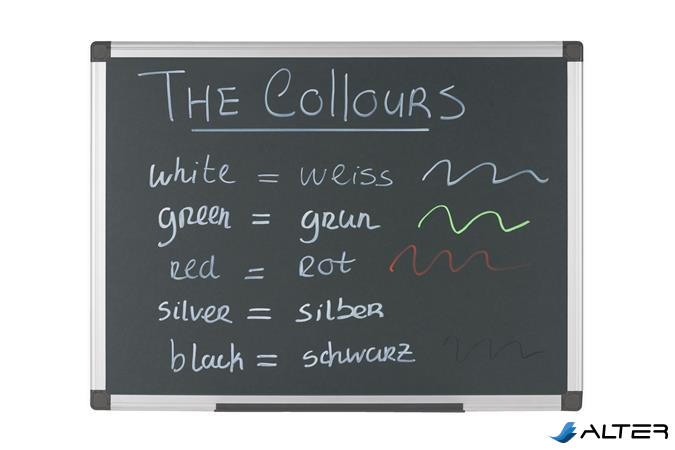 THE COLLOURS
white = weiss
green = grun
red = rot
silver = silber
black = schwarz
ALTER